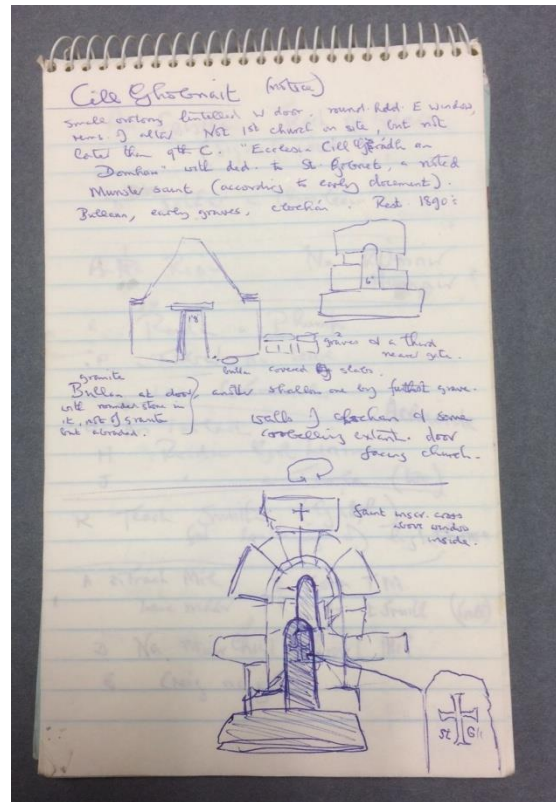 Cill Ghobnait (notice)
small oratory lintelled W door, round-hdd. E window,
rems. of altar Not 1st church on site, but not
later than 9th C. "Ecclesia Cill
Domhan" with ded. to St Gobnet, a noted
Munster saint (according to early document).
Bullaun, early graves, clochán. Rest. 1890s
18
6"
graves & a third
near gate.
bullaun covered by slabs
granite
Bullaun at door
with rounder stone in
it, not of granite
but abraded.
another shallow one by furthest grave.
walls of clochan & some
corbelling extant. door
facing church.
faint inscr. cross
above window
inside.
St G